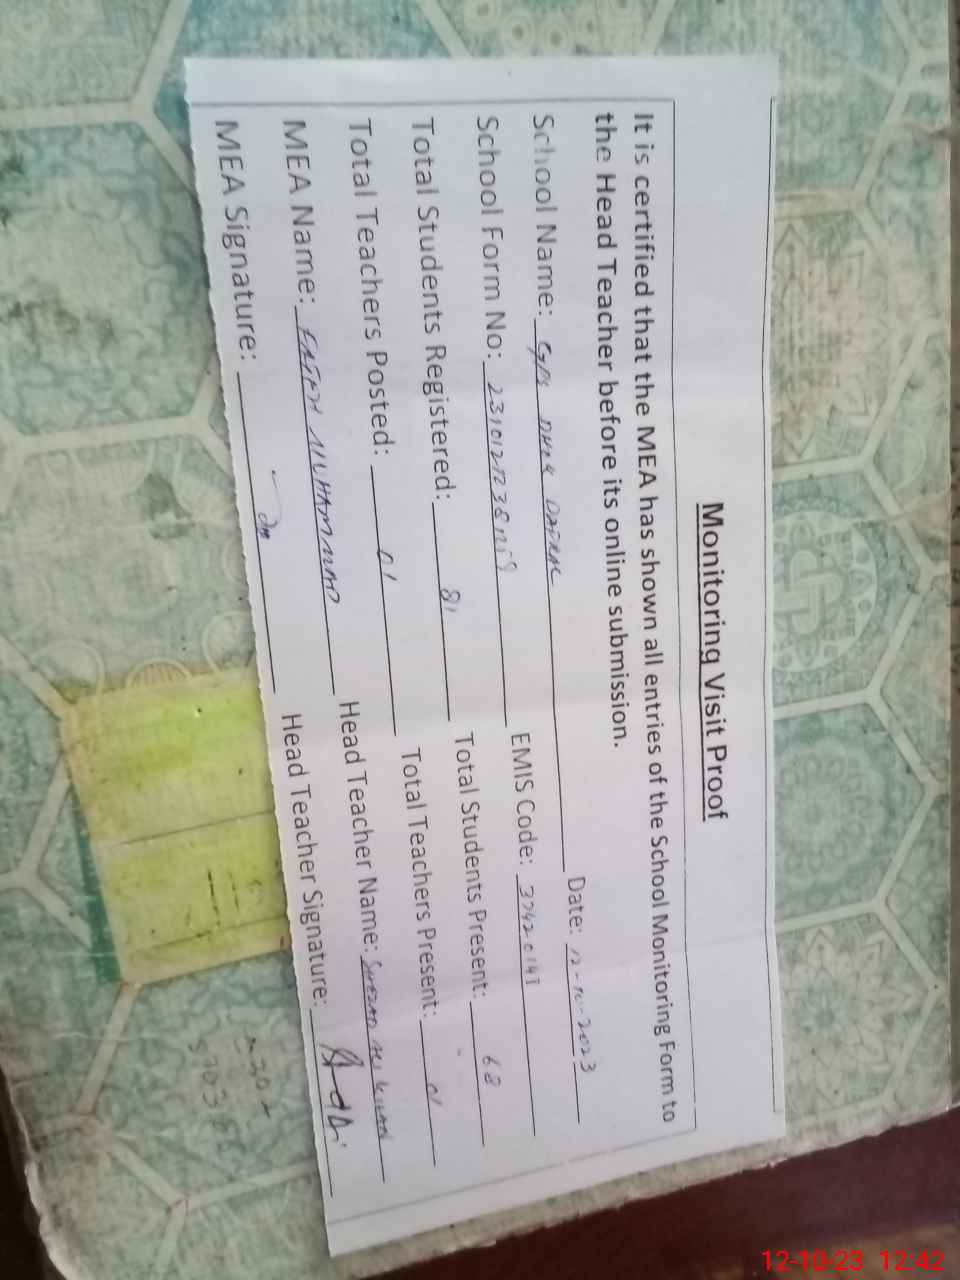 Monitoring Visit Proof
It is certified that the MEA has shown all entries of the School Monitoring Form to
the Head Teacher before its online submission.
School Name: GPS DHOK Date: 12-10-2023
School Form No: EMIS Code: 37420141
Total Students Registered: 81 Total Students Present: 68
Total Teachers Posted: 01 Total Teachers Present: 01
MEA Name: MUHAMMAD Head Teacher Name: KHAN
MEA Signature: Head Teacher Signature:
12-10-23 12:42